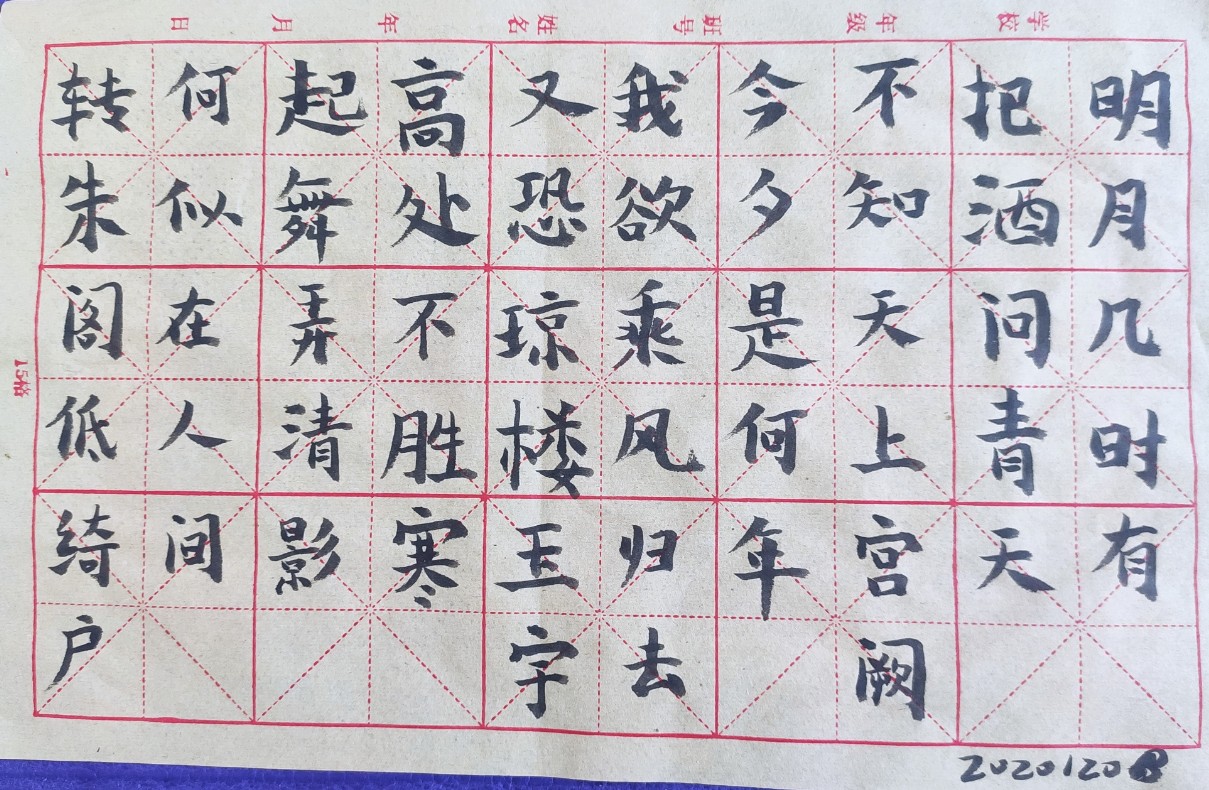 学校 年级 班号 姓名 年 月 日
明月几时有
把酒问青天
不知天上宫阙
今夕是何年
我欲乘风归去
又恐琼楼玉宇
高处不胜寒
起舞弄清影
何似在人间
转朱阁低绮户
15格
2020120